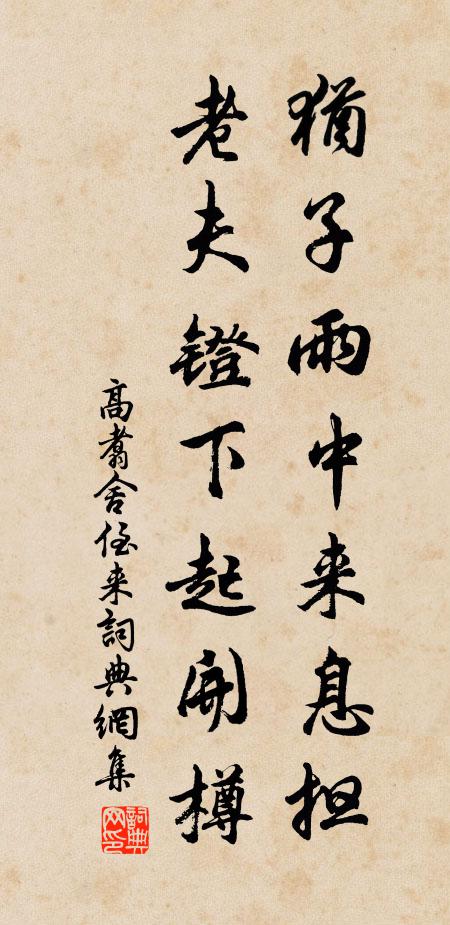 猶子雨中来息担
老夫鐙下起開樽
高翥舍侄来詞典網集
詞典网印